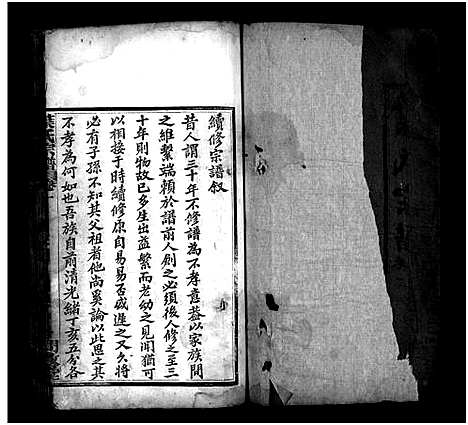 續修宗譜叙
昔人謂三十年不修譜為不孝意葢以家族間
之維繫端賴於譜前人創之必須後人修之至三
十年則物故已多生出益繁而老幼之見聞猶可
以相接于時續修原自易易至或遲之又久將
必有子孫不知其父祖者他尚奚論以此思之其
不孝為何如也吾族自前清光緒丁亥五分各
葉氏宗譜卷一